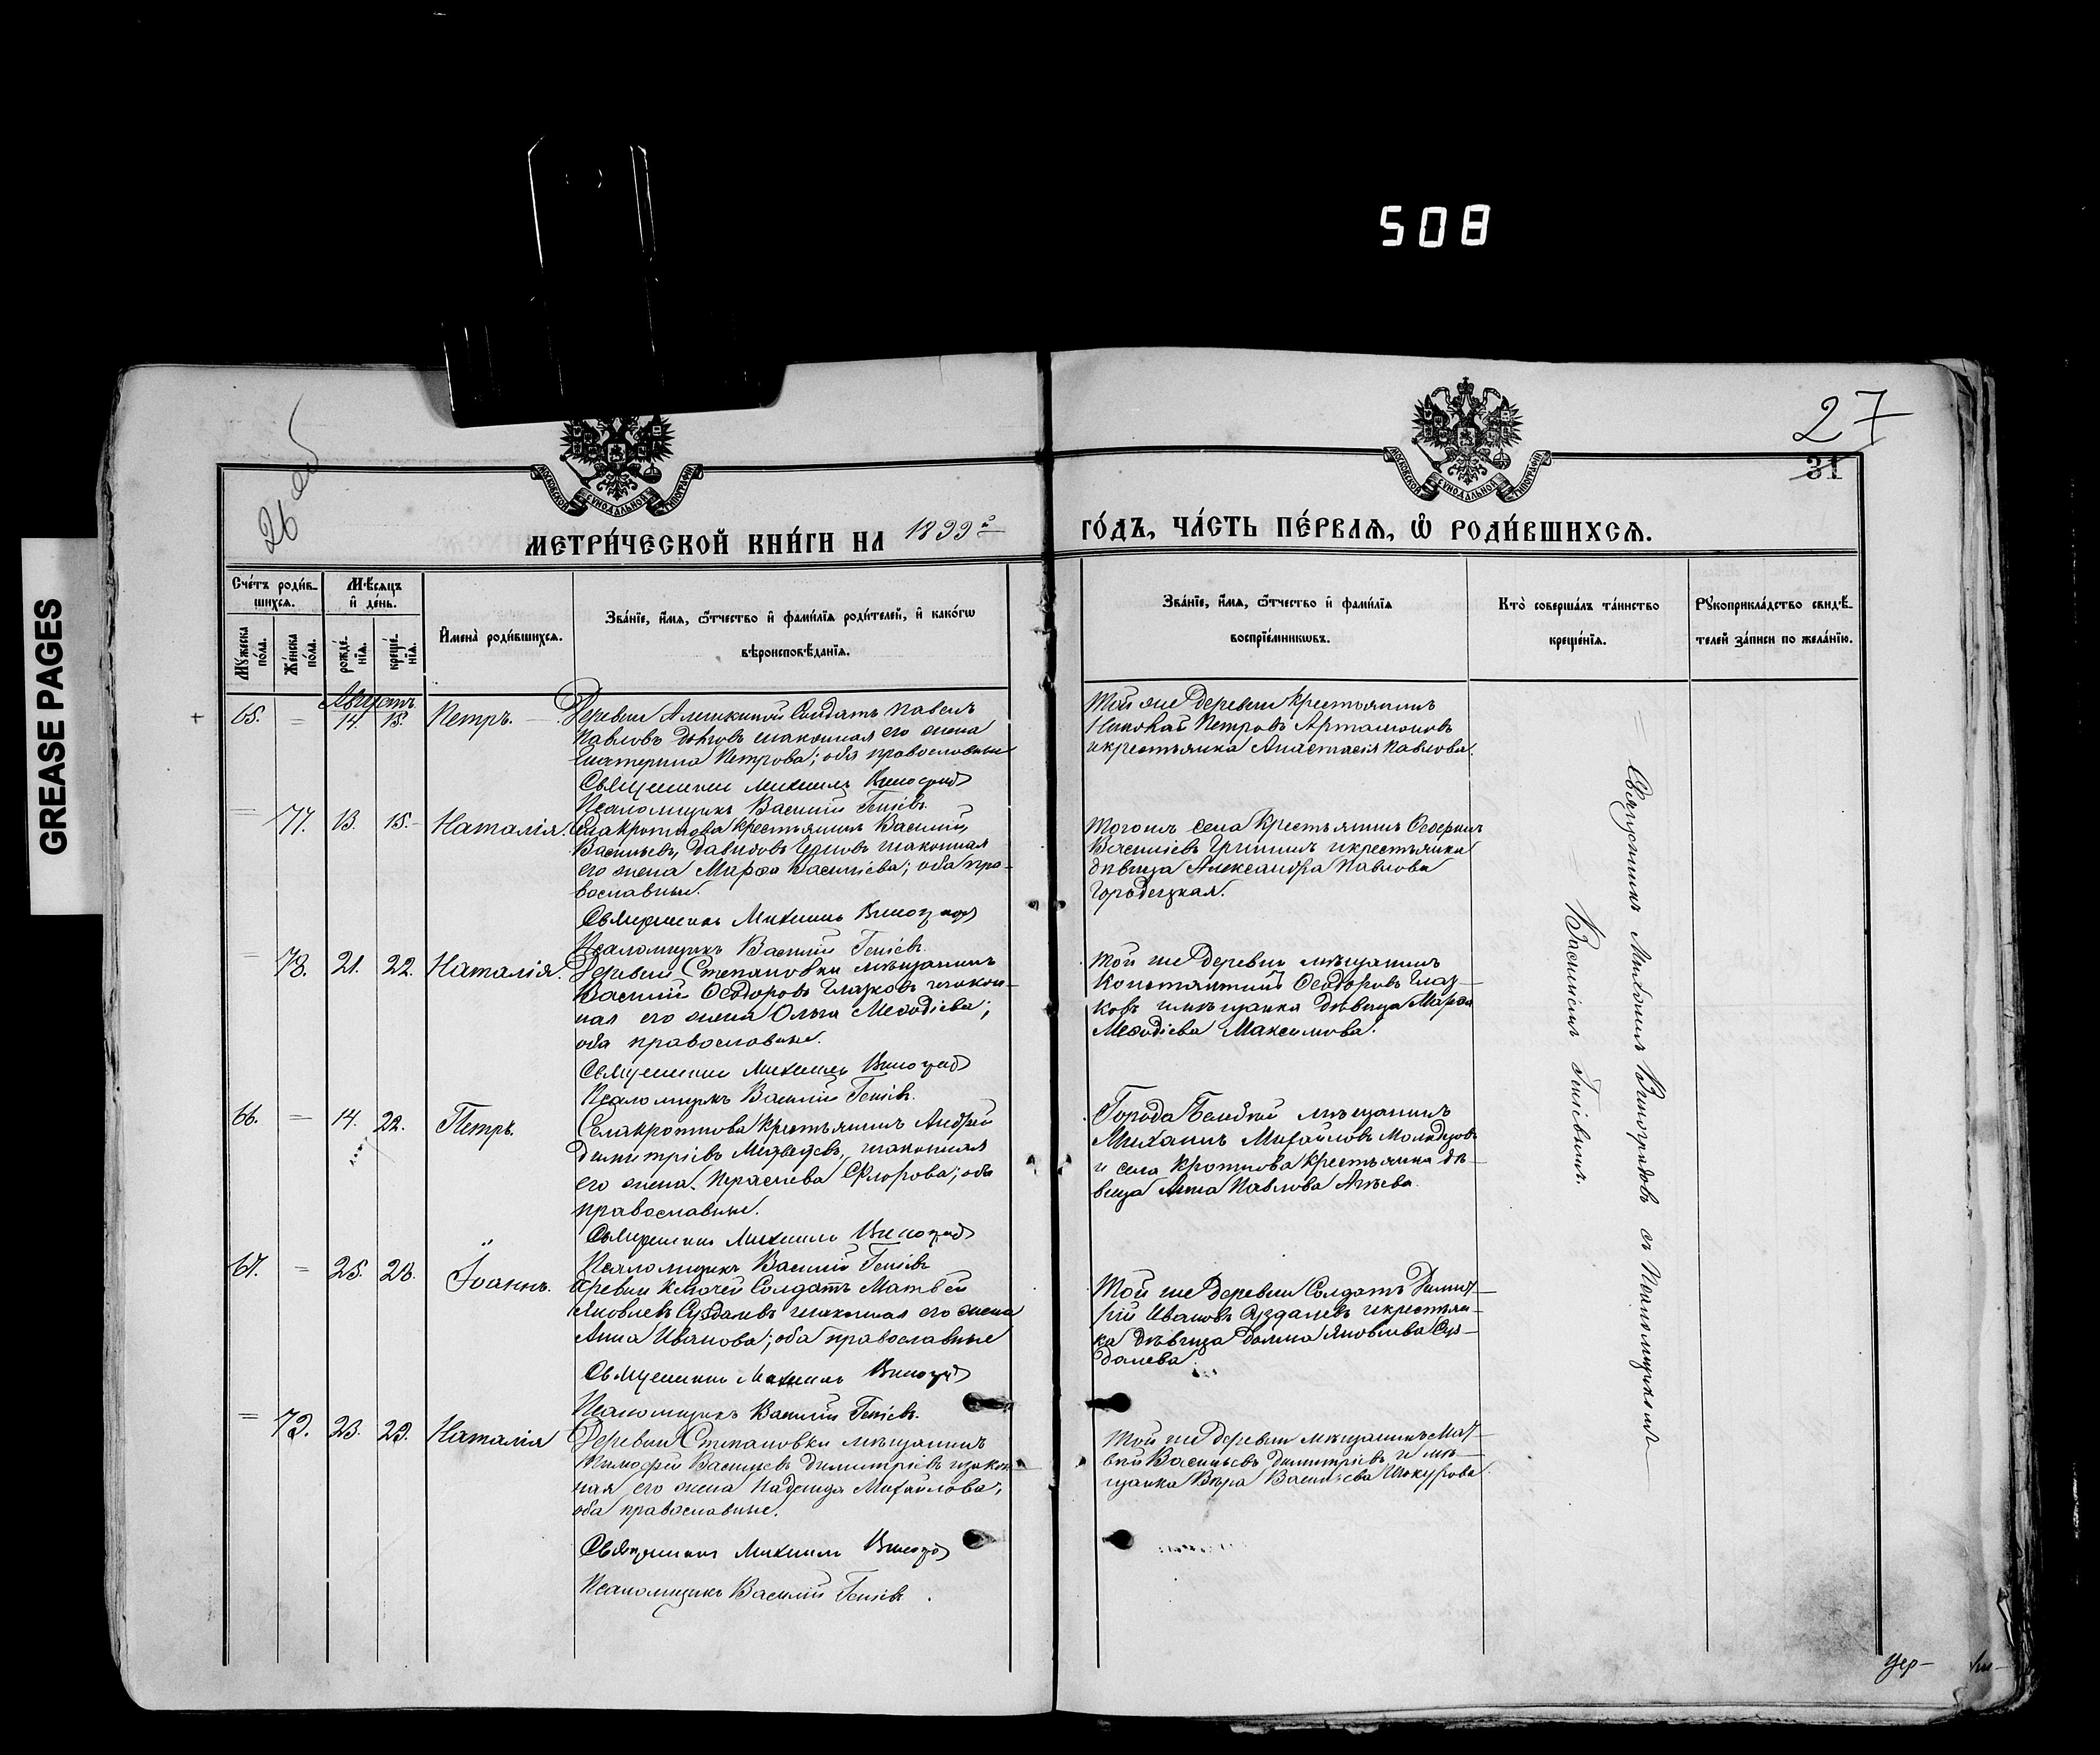 508
GREASE PAGES
26 об
27
31
МОСКОВСКОЙ СѴНОДАЛЬНОЙ ТИПОГРАФІИ
МОСКОВСКОЙ СѴНОДАЛЬНОЙ ТИПОГРАФІИ
МЕТРИ́ЧЕСКОЙ КНИ́ГИ НА 1899й
ГО́ДЪ, ЧА́СТЬ ПЕ́РВАѦ, Ѡ҆ РОДИ́ВШИХСѦ.
Сче́тъ роди́в-
шихсѧ.
Мꙋ́жеска по́ла.
Же́нска по́ла.
Мѣ́сѧцъ
и҆ де́нь.
рожде́-
нїѧ.
креще́-
нїѧ.
И҆мена̀ роди́вшихсѧ.
Зва́нїе, и҆́мѧ, ѻ҆́тчество и҆ фами́лїѧ роди́телей, и҆ како́гѡ
вѣроисповѣ́данїѧ.
Зва́нїе, и҆́мѧ, ѻ҆́тчество и҆ фами́лїѧ
воспрїе́мникѡвъ.
Кто̀ соверша́лъ та́инство
креще́нїѧ.
Рꙋкоприкла́дство свидѣ́-
телей за́писи по жела́нїю.
Августъ
65. = 14. 15. Петръ.
Деревни Алешкиной Солдатъ Павелъ
Павловъ законная его жена
Екатерина Петрова; оба православные
Священникъ Михаилъ Виноград
Псаломщикъ Василій Геніевъ.
Той же деревни крестьянинъ
Николай Петровъ Артамоновъ
и крестьянка Анастасія Павлова.
= 77. 13. 15. Наталія.
Села Кроткова крестьянинъ Василій
Васильевъ, Давидовъ законная
его жена Марѳа Васильева; оба пра-
вославные.
Священникъ Михаилъ Виноград
Псаломщикъ Василій Геніевъ.
Того же села крестьянинъ
Василіевъ и крестьянка
дѣвица Александра Павлова
Городецкая.
= 78. 21. 22. Наталія.
Деревни Степановки мѣщанинъ
Василій Ѳеодоровъ Глазковъ и закон-
ная его жена Ольга Меѳодіева;
оба православные.
Священникъ Михаилъ Виноград
Псаломщикъ Василій Геніевъ.
Той же деревни мѣщанинъ
Константинъ Ѳеодоровъ Глаз-
ковъ и мѣщанка дѣвица Марѳа
Меѳодіева Максимова.
66. = 14. 22. Петръ.
Села Кроткова крестьянинъ Андрей
Димитріевъ Медведевъ, и законная
его жена Флорова; оба
православные.
Священникъ Михаилъ Виноград
Псаломщикъ Василій Геніевъ
Города мѣщанинъ
Михаилъ Михайловъ
и села Кроткова крестьянка дѣ-
вица Анна Павлова
67. = 25. 28. Іоаннъ.
Деревни Ключей Солдатъ Матвей
Яковлевъ Суздалевъ и законная его жена
Анна Иванова; оба православные
Священникъ Михаилъ Виноград
Псаломщикъ Василій Геніевъ.
Той же деревни Солдатъ Димит-
рій Ивановъ Суздалевъ и крестьян-
ка дѣвица Домна Яковлева Суз-
далева.
= 79. 28. 29. Наталія
Деревни Степановки мѣщанинъ
Тимоѳей Васильевъ Димитріевъ и закон-
ная его жена Надежда Михайлова;
оба православные.
Священникъ Михаилъ Виноград
Псаломщикъ Василій Геніевъ.
Той же деревни мѣщанинъ Мат-
вей Васильевъ Димитріевъ и мѣ-
щанка Вѣра Васильева
= Священникъ Михаилъ Виноградовъ съ Псаломщикомъ
= Василіемъ Геніевымъ.